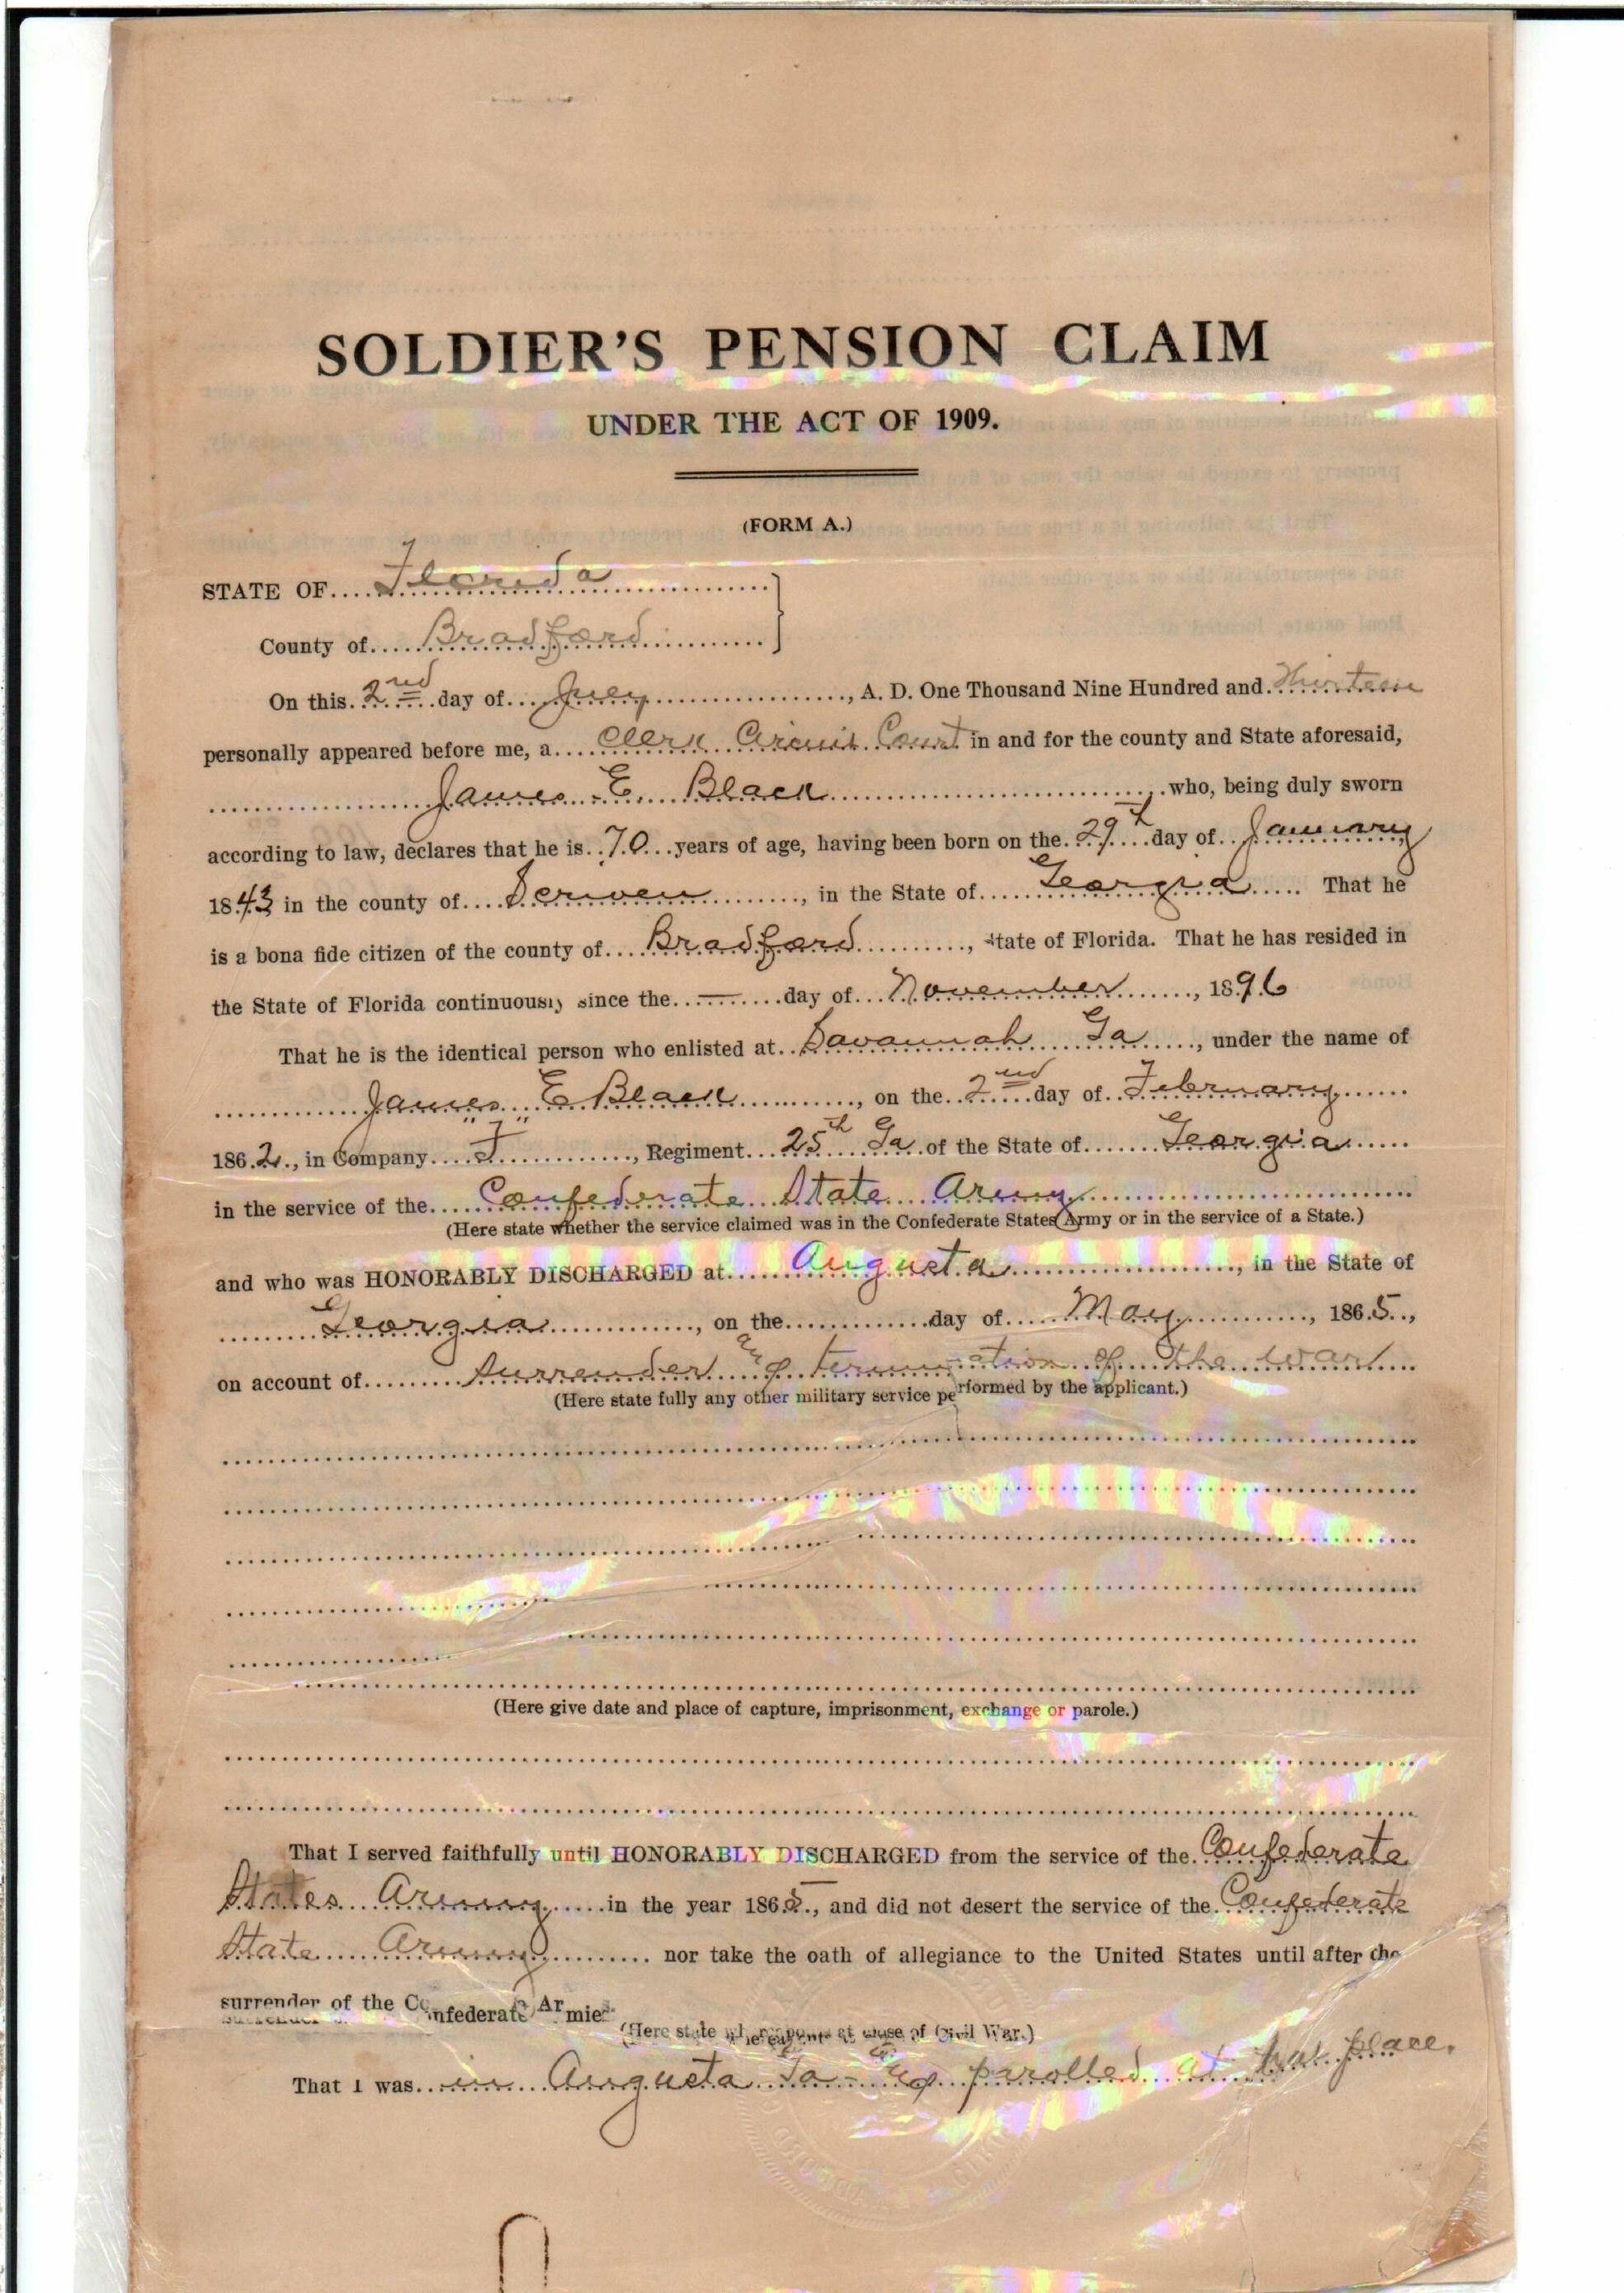 SOLDIER'S PENSION CLAIM
UNDER THE ACT OF 1909.
(FORM A.)
STATE OF....Florida
County of....Bradford
On this 2nd day of July, A. D. One Thousand Nine Hundred and Thirteen
personally appeared before me, a Clerk Circuit Court in and for the county and State aforesaid,
James E. Black, who, being duly sworn
according to law, declares that he is 70 years of age, having been born on the 29th day of January
1843 in the county of Scriven, in the State of Georgia. That he
is a bona fide citizen of the county of Bradford, State of Florida. That he has resided in
the State of Florida continuously since the — day of November, 1896
That he is the identical person who enlisted at Savannah Ga, under the name of
James E Black, on the 2nd day of February
1862, in Company "F", Regiment 25th Ga of the State of Georgia
in the service of the Confederate State Army
(Here state whether the service claimed was in the Confederate States Army or in the service of a State.)
and who was HONORABLY DISCHARGED at Augusta, in the State of
Georgia, on the day of May, 1865,
on account of surrender & termination of the war
(Here state fully any other military service performed by the applicant.)
(Here give date and place of capture, imprisonment, exchange or parole.)
That I served faithfully until HONORABLY DISCHARGED from the service of the Confederate
States Army in the year 1865, and did not desert the service of the Confederate
State Army nor take the oath of allegiance to the United States until after the
surrender of the Confederate Armies.
(Here state whereabouts at close of Civil War.)
That I was in Augusta Ga - & parolled at that place.